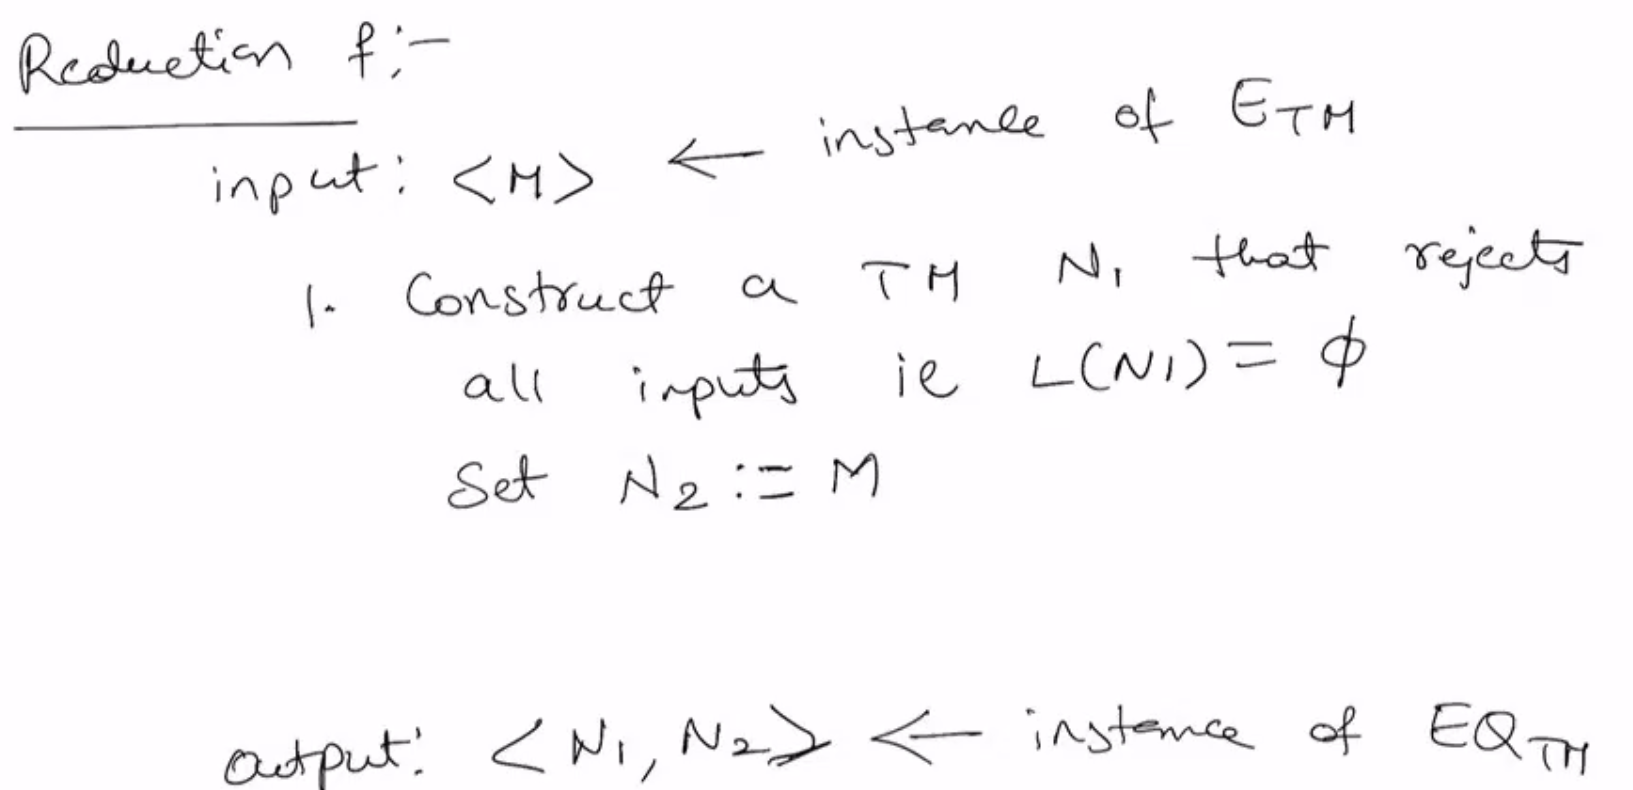 Reduction f:-
input: <M> ← instance of E_TM
1. Construct a TM N₁ that rejects
all inputs ie L(N1) = ϕ
Set N₂ := M
output: <N₁, N₂> ← instance of EQ_TM